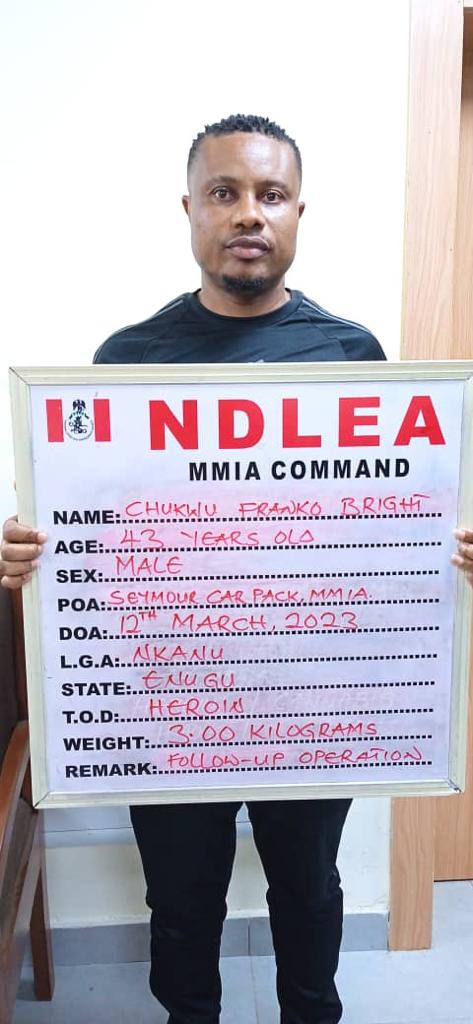 NDLEA
MMIA COMMAND
NAME: CHUKWU FRANKO BRIGHT
AGE: 43 YEARS OLD
SEX: MALE
POA: SEYMOUR CAR PACK, MMIA.
DOA: 12TH MARCH, 2023
L.G.A: NKANU
STATE: ENUGU
T.O.D: HEROIN
WEIGHT: 3.00 KILOGRAMS
REMARK: FOLLOW-UP OPERATION